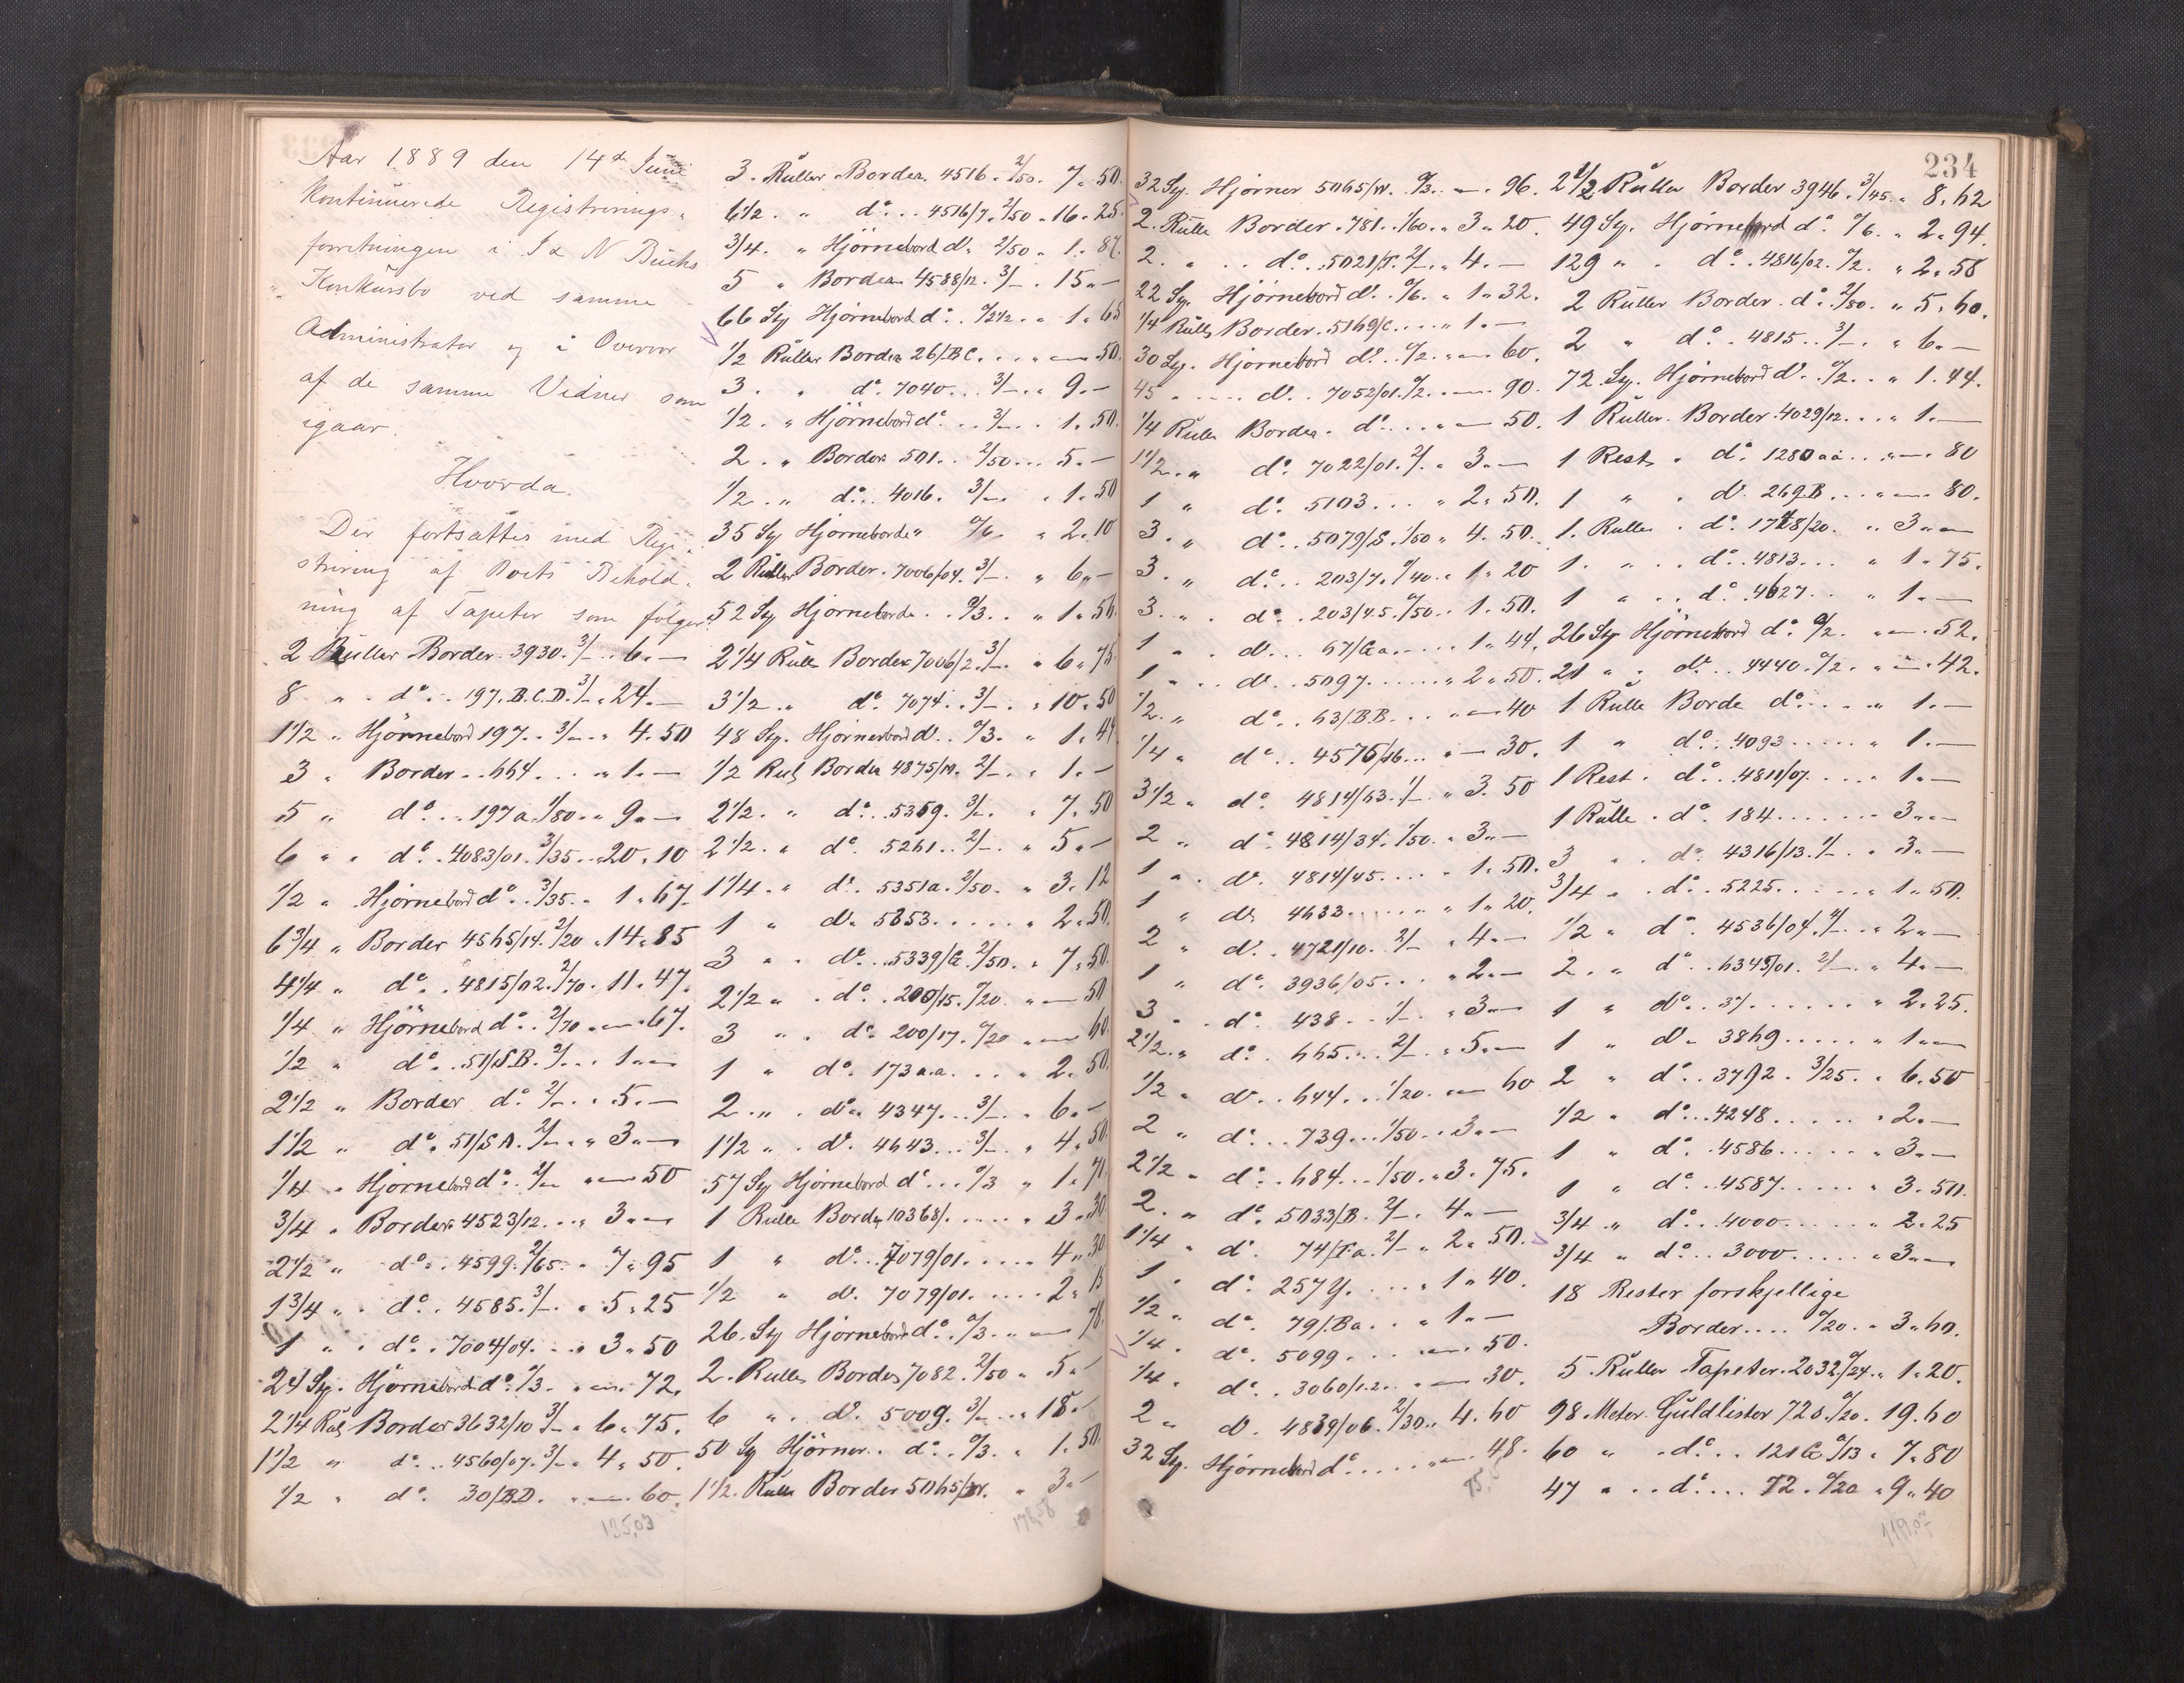 Aar 1889 den 14de Juni
kontinuerede Registrerings-
forretningen i I & N Buchs
Konkursbo ved samme
Administrator og i Overvær
af de samme Vidner som
igaar.
Hvorda.
Der fortsættes med Regi-
strering af Boets Behold-
ning af Tapeter som følger.
2 Ruller Border. 3930. 3/- . 6 . -
8 " . do . . 197. B.C.D. 3/- . 24. -
1 1/2 " Hjørnebord 197 . . 3/- . " 4. 50
3 " Border . . 664 . . . " 1. -
5 " do . . . 197 a. 1/80 . " 9 . -
6 " . do . 4083/01. 3/35 . . 20 . 10
1/2 " Hjørnebord do . . 3/35 . " 1 . 67.
6 3/4 " Border 4565/14. 2/20 . 14 . 85
4 1/4 " do . . 4815/02. 2/70 . 11 . 47.
1/4 " Hjørnebord do . . 2/70 . " - . 67.
1/2 " do . . 51/S.B. 2/- . . 1 . -
2 1/2 " Border do . 2/- . . 5. -
1 1/2 " do . 51/S A. 2/- . " 3 . -
1/4 " Hjørnebord do . 2/- " - 50
3/4 " Border 4523/12. . . " 3 . -
2 1/2 " do . . 4599. 2/65 . . 7 . 95
1 3/4 " . do . . 4585. 3/- . . 5 . 25
1 " . do . . 7004/04. . . " 3 . 50
24 Sty. Hjørnebord do . 0/3. . " - . 72.
2 1/4 Rul Border 3632/10 3/- . 6 . 75.
1 1/2 " do . . 4560/07. 3/- . 4 . 50.
1/2 " do . 30/B.D. . " - . 60.
135,03
3. Ruller Border. 4516 . 2/50 . 7 . 50.
6 1/2 . " do . . 4516/7. 2/50 . 16 . 25.
3/4 . " Hjørnebord do . 2/50 . 1 . 87.
5 " Border 4588/12. 3/- . 15 . -
66 Sty Hjørnebord do . . 0/2 1/2 . . 1 . 65
1/2 Ruller Border 26/.B C. . . . " - 50.
3. " do . 7040 . . . 3/- . . 9. -
1/2 . " Hjørnebord do . . 3/- . . 1 . 50.
2 . " Border 501. . 2/50 . . . 5. -
1/2 . " do . . 4016. 3/- . . 1 . 50
35 Sty Hjørneborde " 0/6 . 2 . 10
2 Ruller Border. 7006/04. 3/- . " 6 . -
52 Sty Hjørneborde . . 0/3 . . " 1 . 56.
2 1/4 Rulle Border 7006/2. 3/- . " 6 . 75.
3 1/2 . " do . 7074. . 3/- . " 10 . 50
48 Sty. Hjørnebord do . . 0/3. " 1 . 44
1/2 Rul Border 4875/10. 2/- . . 1 . -
2 1/2 . " do . . 5369. 3/- . . 7 . 50
2 1/2 . " do . 5261 . . 2/- . " 5 . -
1 1/4 . " do . . 5351a. 2/50. " 3 . 12
1 " do . 5353 . . . . " 2 . 50.
3 " . do . . . 5339/G. 2/50. . 7 . 50.
2 1/2 " . do . . 200/15. 0/20. " - 50
3 " . do . 200/17. 0/20 " - 60.
1 " do . 173 a.a. . . . 2 . 50.
2 . " . do . 4347 . . . 3/- . " 6 . -
1 1/2 " . do . 4643 . . . 3/- . . 4 . 50.
57 Sty Hjørnebord do . . . 0/3 " 1 . 71.
1 Rulle Border 10368/. . . . . . 3 . 30
1 " do . . . 7079/01. . . . . 4 " 30
1/2 " do . 7079/01. . . . . 2 . 15
26. Sty Hjørnebord do . 0/3 . " - 78.
2. Rulle Border 7082. 2/50 . 5 . -
6 " . do . 5009. 3/- . . . 18 . -
50 Sty Hjørner . . do . . 0/3 . . 1 . 50.
1 1/2. Rulle Border 5065/W. . 3 . -
234
32 Sty. Hjørner 5065/W. 0/3 . . - . 96.
2. Rulle Border . 781. . 1/60 . " 3 . 20.
2. " . . do . . 5021/T. 2/- . . 4 . -
22 Sty. Hjørnebord do . . 0/6. " 1 . 32.
1/4 Rulle Border. 5169/C. . . . " 1 . -
30 Sty. Hjørnebord do . . 0/2 . " - 60.
45 " . . . . do . . 7052/01. 0/2 . . - 90.
1/4 Rulle Border. do . . . . " - 50.
1 1/2 . " do . 7022/01. 2/- . 3 . -
1 " do . 5103 . . . " 2 . 50.
3 . " do . . 5079/S. 1/50 " 4 . 50.
3 . " do . . 203/7. 0/40 . . 1 . 20
3 . " . do . . 203/45. 0/50 . . 1 . 50.
1 " . do . . . 67/Ga. . . . . 1 . 44.
1 " . . do . . 5097 . . . . . . " 2 . 50.
1/2 . " do . . 63/B.B. . . " - 40
1/4 " do . . 4576/16 . . . . - 30.
3 1/2 " do . 4814/63. 1/- . " 3. 50
2 " do . 4814/34. 1/50. . 3 . -
1 " . do . 4814/45. . . . . 1 . 50.
1 " do . 4633 . . . . . " 1 . 20.
2 " do . . 4721/10. 2/- . 4 . -
1 " do . 3936/05. . . . 2 . -
3 " . do . 438 . . . 1/- . . 3 . -
2 1/2 . " do . 665 . . . 2/- . . 5 . -
1/2 " do . . 644 . . 1/20. " - 60
2 " do . . . 739 . . . 1/50 . . 3 . -
2 1/2 " do . . 684 . . . 1/50. . 3 . 75.
2. " do . 5033/B. 2/- . 4 . -
1 1/4 " do . 74/Ta. 2/- . 2 . 50.
1 " do . 257 Y. . . . . 1 . 40.
1/2 " do . 79/.Ba. . . " 1 . -
1/4 . do . 5099 . . . . - 50.
1/4 . do . . 3060/12 . . " - 30.
2 " do . 4839/06. 2/30 . . 4 . 60
32 Sty. Hjørnebord do . . . . . " - . 48.
2 1/2 Ruller Border 3946. 3/45. . 8 . 62
49 Sty. Hjørnebord do . 0/6. . 2 . 94.
129 " . do . . 4816/02. 0/2. " 2 . 58
2 Ruller Border. do . 2/80. " 5 . 60.
2 " do . . 4815 . . 3/- . . 6 . -
72. Sty. Hjørnebord do . . 0/2 . . " 1. 44.
1 Ruller. Border. 4029/12. . . . 1 . -
1 Rest. . do . 1280 aa . . " - . 80
1 " . do . 269.B . . . " - . 80.
1. Ruller . do . 1748/20. . . 3 . -
1. " . . do . . 4813 . . . " 1 . 75.
1 " . . do . 4627 . . . " 1 . -
26 Sty. Hjørnebord do . 0/2. " - . 52.
21 " . do . . 4440. 0/2. " - . 42.
1 Rulle Borde do . . . . . " 1 . -
1 " do . . 4093 . . . . . " 1 . -
1 Rest . do . . 4811/07. . . . " 1 . -
1 Rulle . do . 184 . . . . . . . 3 . -
3 " . do . 4316/13. 1/- . . 3 . -
3/4 " . do . . 5225 . . . . . . . 1 . 50.
1/2 " do . 4536/04. 4/- . . . 2 . -
2. " do . . 6345/01. 2/- . " 4 . -
1 " do . . 37 . . . . . . . " 2 . 25.
1 " do . 3869 . . . . . " 1 . -
2 " do . . 3792. 3/25. . 6. 50
1/2 " do . . 4248 . . . . . . 2 . -
1 " do . . 4586 . . . . . " 3 . -
1 " do . . 4587 . . . . . " 3. 50.
3/4 " do . . 4000 . . . . . . 2. 25
3/4 " do . . 3000 . . . . . . 3 . -
18 Rester forskjellige
Border . . . . 0/20 . . 3 . 60.
5 Ruller Tapeter. 2032. 0/24. . 1 . 20.
98. Meter Guldlister 72 S. 0/20. 19. 60
60 " . do . . 121 G 0/13 . 7 . 80
47 " . . do . . . . 72 . 0/20 . 9 . 40
119,07